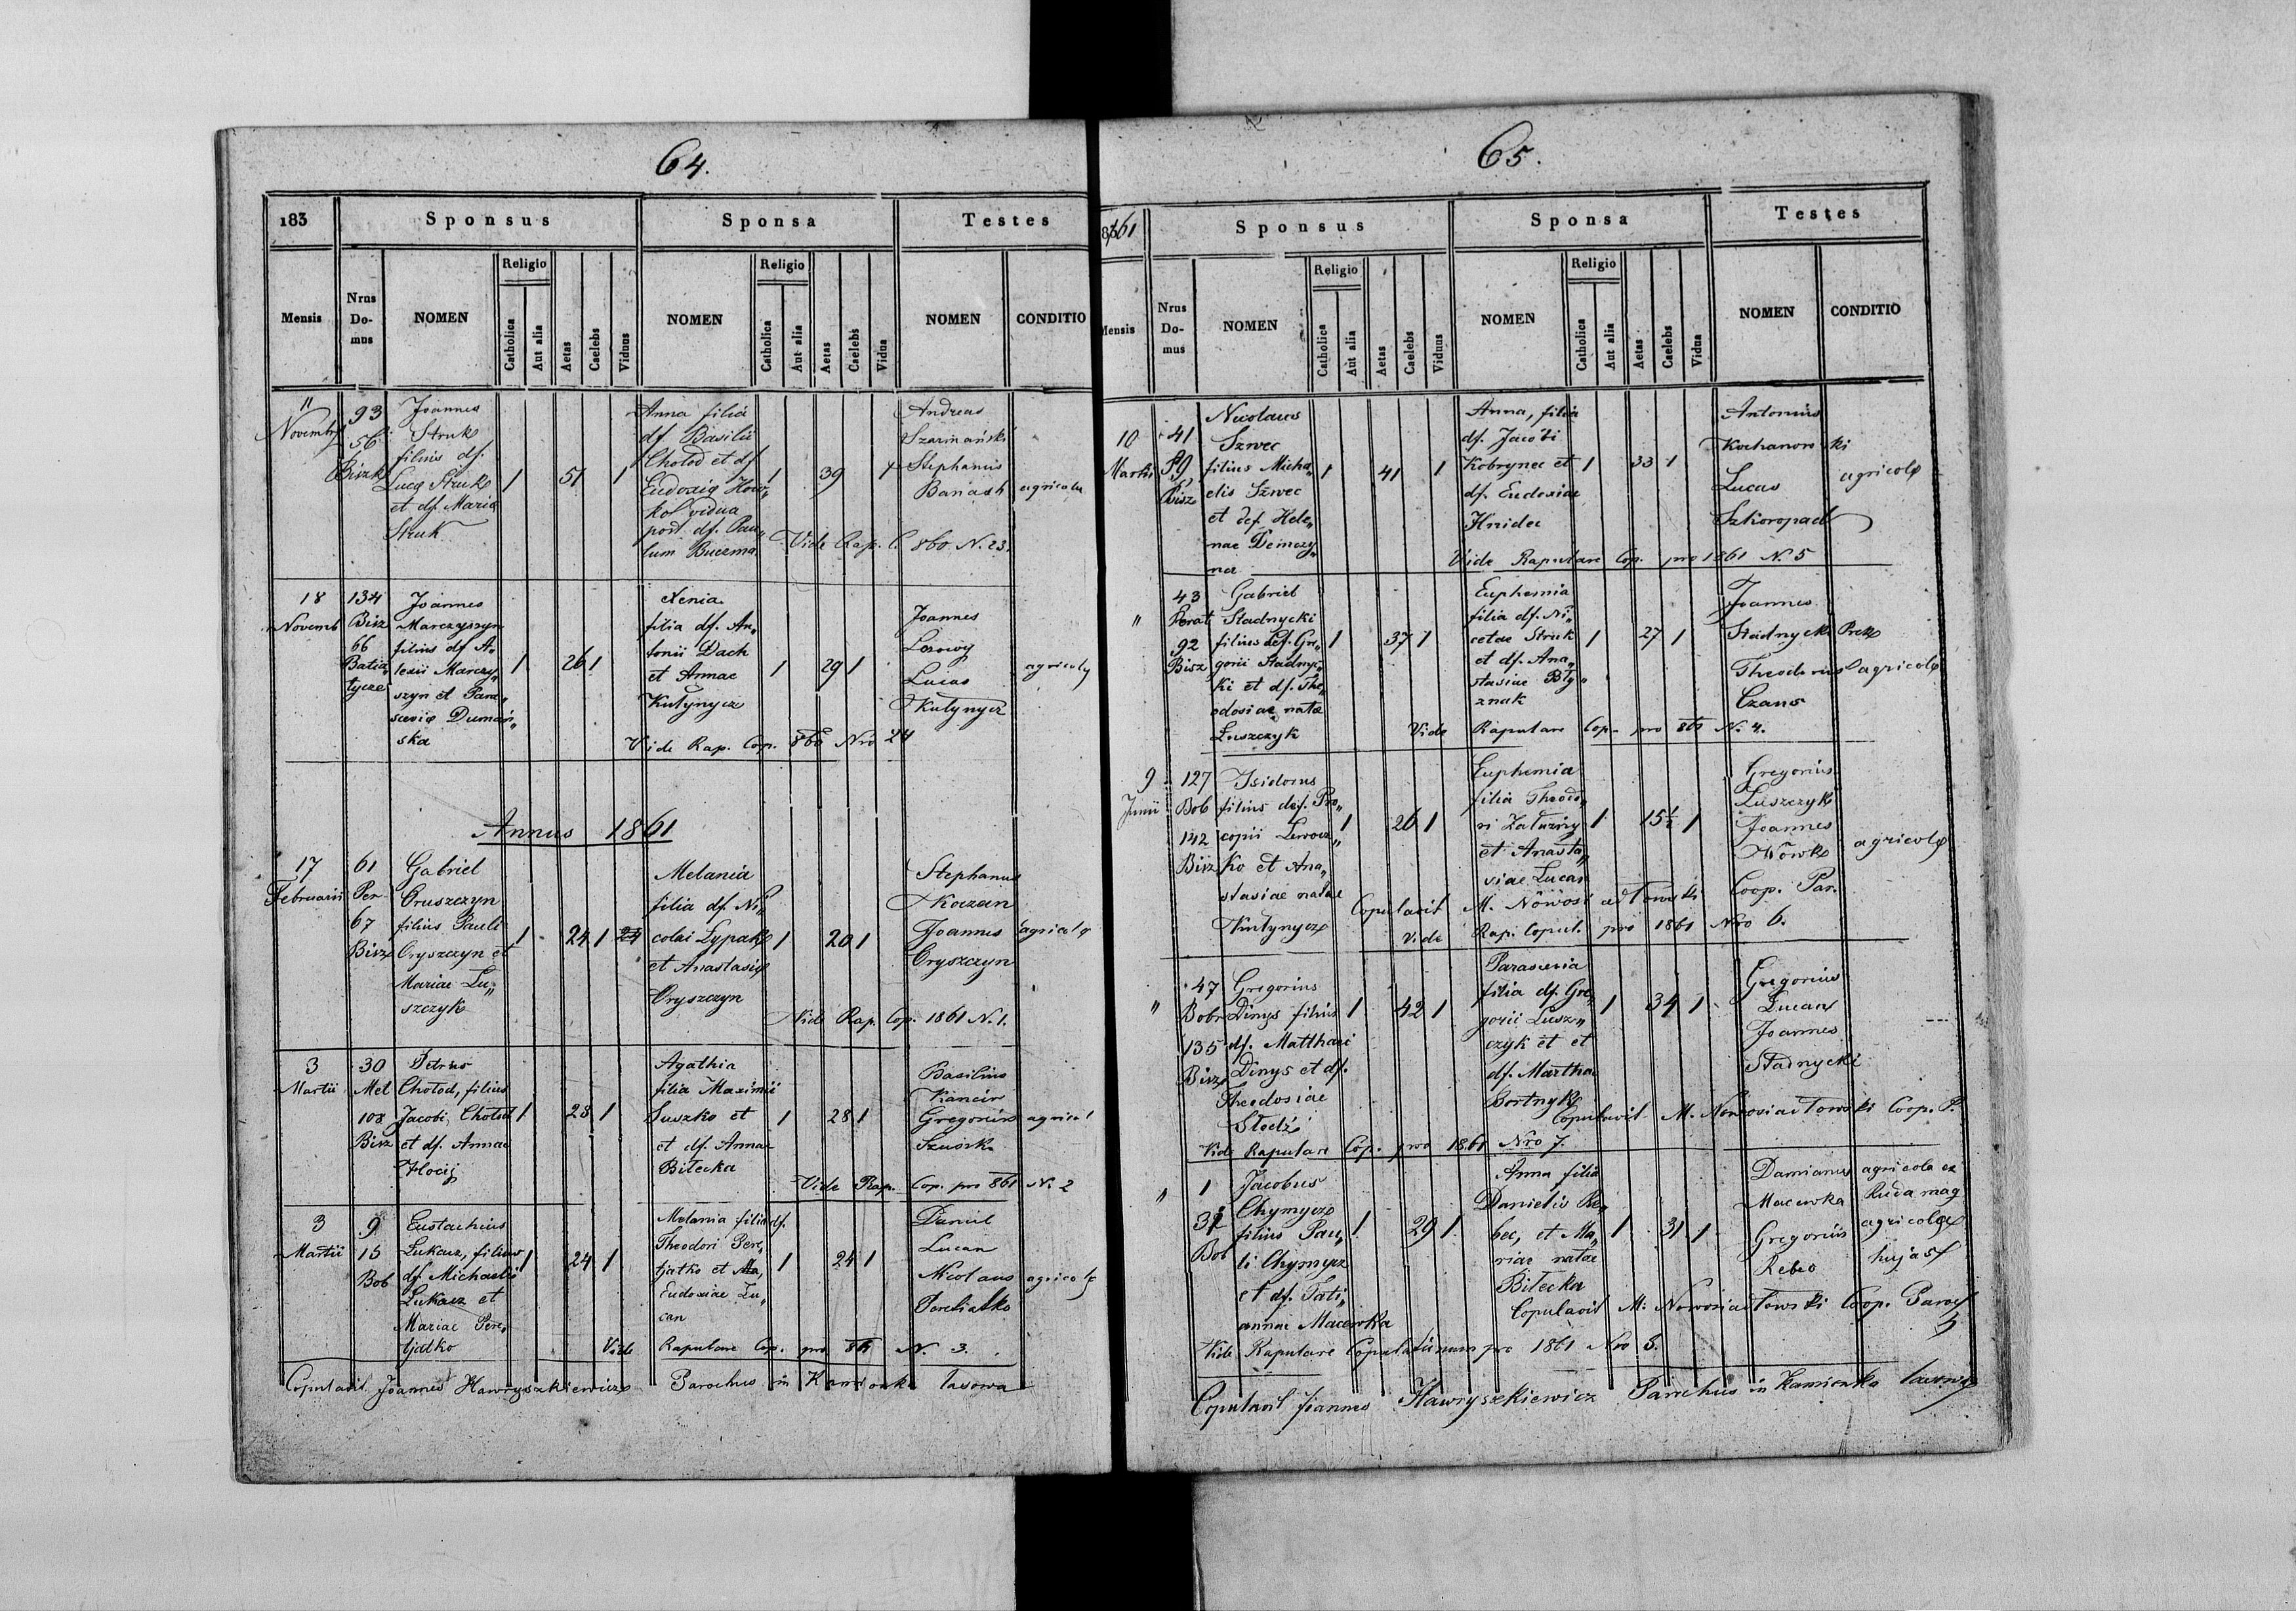 64.
183
Sponsus
Sponsa
Testes
Mensis
Nrus Do-mus
NOMEN
Religio
Catholica
Aut alia
Aetas
Caelebs
Viduus
NOMEN
Religio
Catholica
Aut alia
Aetas
Caelebs
Vidua
NOMEN
CONDITIO
11 Novembr
93
56
Joannes
Struk
filius df.
Lucę Struk
et df. Maria
Struk
1 51 1
Anna filia
df. Basilii
Chołod et df
Eudoxię
Kol vidua
post. df. Pau„
lum Buczma
1 39 1
Andreas
Szarmański
Stephanus
Banash
agricola
Vide Rap. C. 860 N. 23.
18
Novemb
134
Bisz
66
Batia„
tycze
Joannes
Marczyszyn
filius df A„
lexii Marczy„
szyn et Para„
scevię Dumań„
ska
1 26 1
Xenia
filia df. An„
tonii Dach
et Annae
Kutynycz
1 29 1
Joannes
Lucas
Kutynycz
agricolę
Vide Rap. Cop. 860 Nro 24
Annus 1861
17
Februarii
61
Per
67
Bisz
Gabriel
Oruszczyn
filius Pauli
Oryszczyn et
Mariae Łu„
szczyk
1 24 1 24
Melania
filia df. Ni„
colai Łypak
et Anastasię
Oryszczyn
1 20 1
Stephanus
Kozan
Joannes
Oryszczyn
agricolę
Vide Rap. Cop. 1861 N. 1.
3
Martii
30
Mel
108
Bisz
Petrus
Chołod, filius
Jacobi Chołod
et df. Annae
1 23 1
Agathia
filia Maximi
Suszko et
et df. Annae
Bilecka
1 28 1
Basilius
Gregorius
agricol
Vide Rap. Cop. pro 861 N. 2
3
Martii
9
15
Bob
Eustachius
Łukacz, filius
df. Michaelis
Łukacz et
Mariae Pere„
tjatko
1 24 1
Melania filia df.
Theodori Pere„
tjatko et
Eudoxiae Łu„
can
1 24 1
Daniel
Lucan
Nicolaus
Peretiatko
agricolę
Vide Rapulare Cop. pro 861 N. 3.
Copulavit Joannes Hawryszkiewicz Parochus in Kamionka lasowa
65.
1861
Sponsus
Sponsa
Testes
Mensis
Nrus Do-mus
NOMEN
Religio
Catholica
Aut alia
Aetas
Caelebs
Viduus
NOMEN
Religio
Catholica
Aut alia
Aetas
Caelebs
Vidua
NOMEN
CONDITIO
10
Martii
41
Bisz
Nicolaus
Szwec
filius Micha„
elis Szwec
et def. Hele„
nae Demczy„
na
1 41 1
Anna, filia
df. Jacobi
Kobrynec et
df. Eudoxiae
Hnidec
1 33 1
Antonius
Kochanowski
Lucas
Szkoropad
agricolę
Vide Rapulare Cop. pro 1861 N. 5
„
43
92
Bisz
Gabriel
Stadnycki
filius def. Gre„
gorii Stadnyc„
ki et df. The„
odosiae nata
Łuszczyk
1 37 1
Euphemia
filia df. Ni„
cetae Struk
et df. Ana„
stasiae
znak
1 27 1
Joannes
Stadnycki
Theodorus
agricolę
Vide Rapulare Cop. pro 861 N. 4.
9
Junii
127
Bob
142
Bisz
Isidorus
filius def. Pro„
copii Lewocz„
ko et Ana„
stasiae natae
Kutynycz
1 26 1
Euphemia
filia Theodo„
ri Załuzny
et Anasta„
siae Lucan
1 15½ 1
Gregorius
Łuszczyk
Joannes
Wowk
agricolę
Copulavit M. Nowosiadłowski Coop. Par.
Vide Rap. Copul. pro 1861 Nro 6.
„
47
Bobr
135
Bisz
Gregorius
Dinys filius
df. Matthaei
Dinys et df.
Theodosiae
1 42 1
Parascevia
filia df. Gre„
gorii Łusz„
czyk et et
df. Martha
Bortnyk
1 34 1
Gregorius
Lucan
Joannes
Stadnycki
Copulavit M. Nowosiadłowski Coop. P.
Vide Rapulare Cop. pro 1861 Nro 7.
„
1
Bob
Jacobus
Chymycz
filius Pau„
li Chymycz
et df. Tati„
annae Macewka
1 29 1
Anna filia
Danielis Re„
bec, et Ma„
riae natae
Bilecka
1 31 1
Damianus
Macewka
Gregorius
Rebec
agricola ex
Ruda mag
agricolę
hujas
Copulavit M. Nowosiadłowski Coop. Paroch
Vide Rapulare Copulatorum pro 1861 Nro 8.
Copulavit Joannes Hawryszkiewicz Parochus in Kamionka lasowa